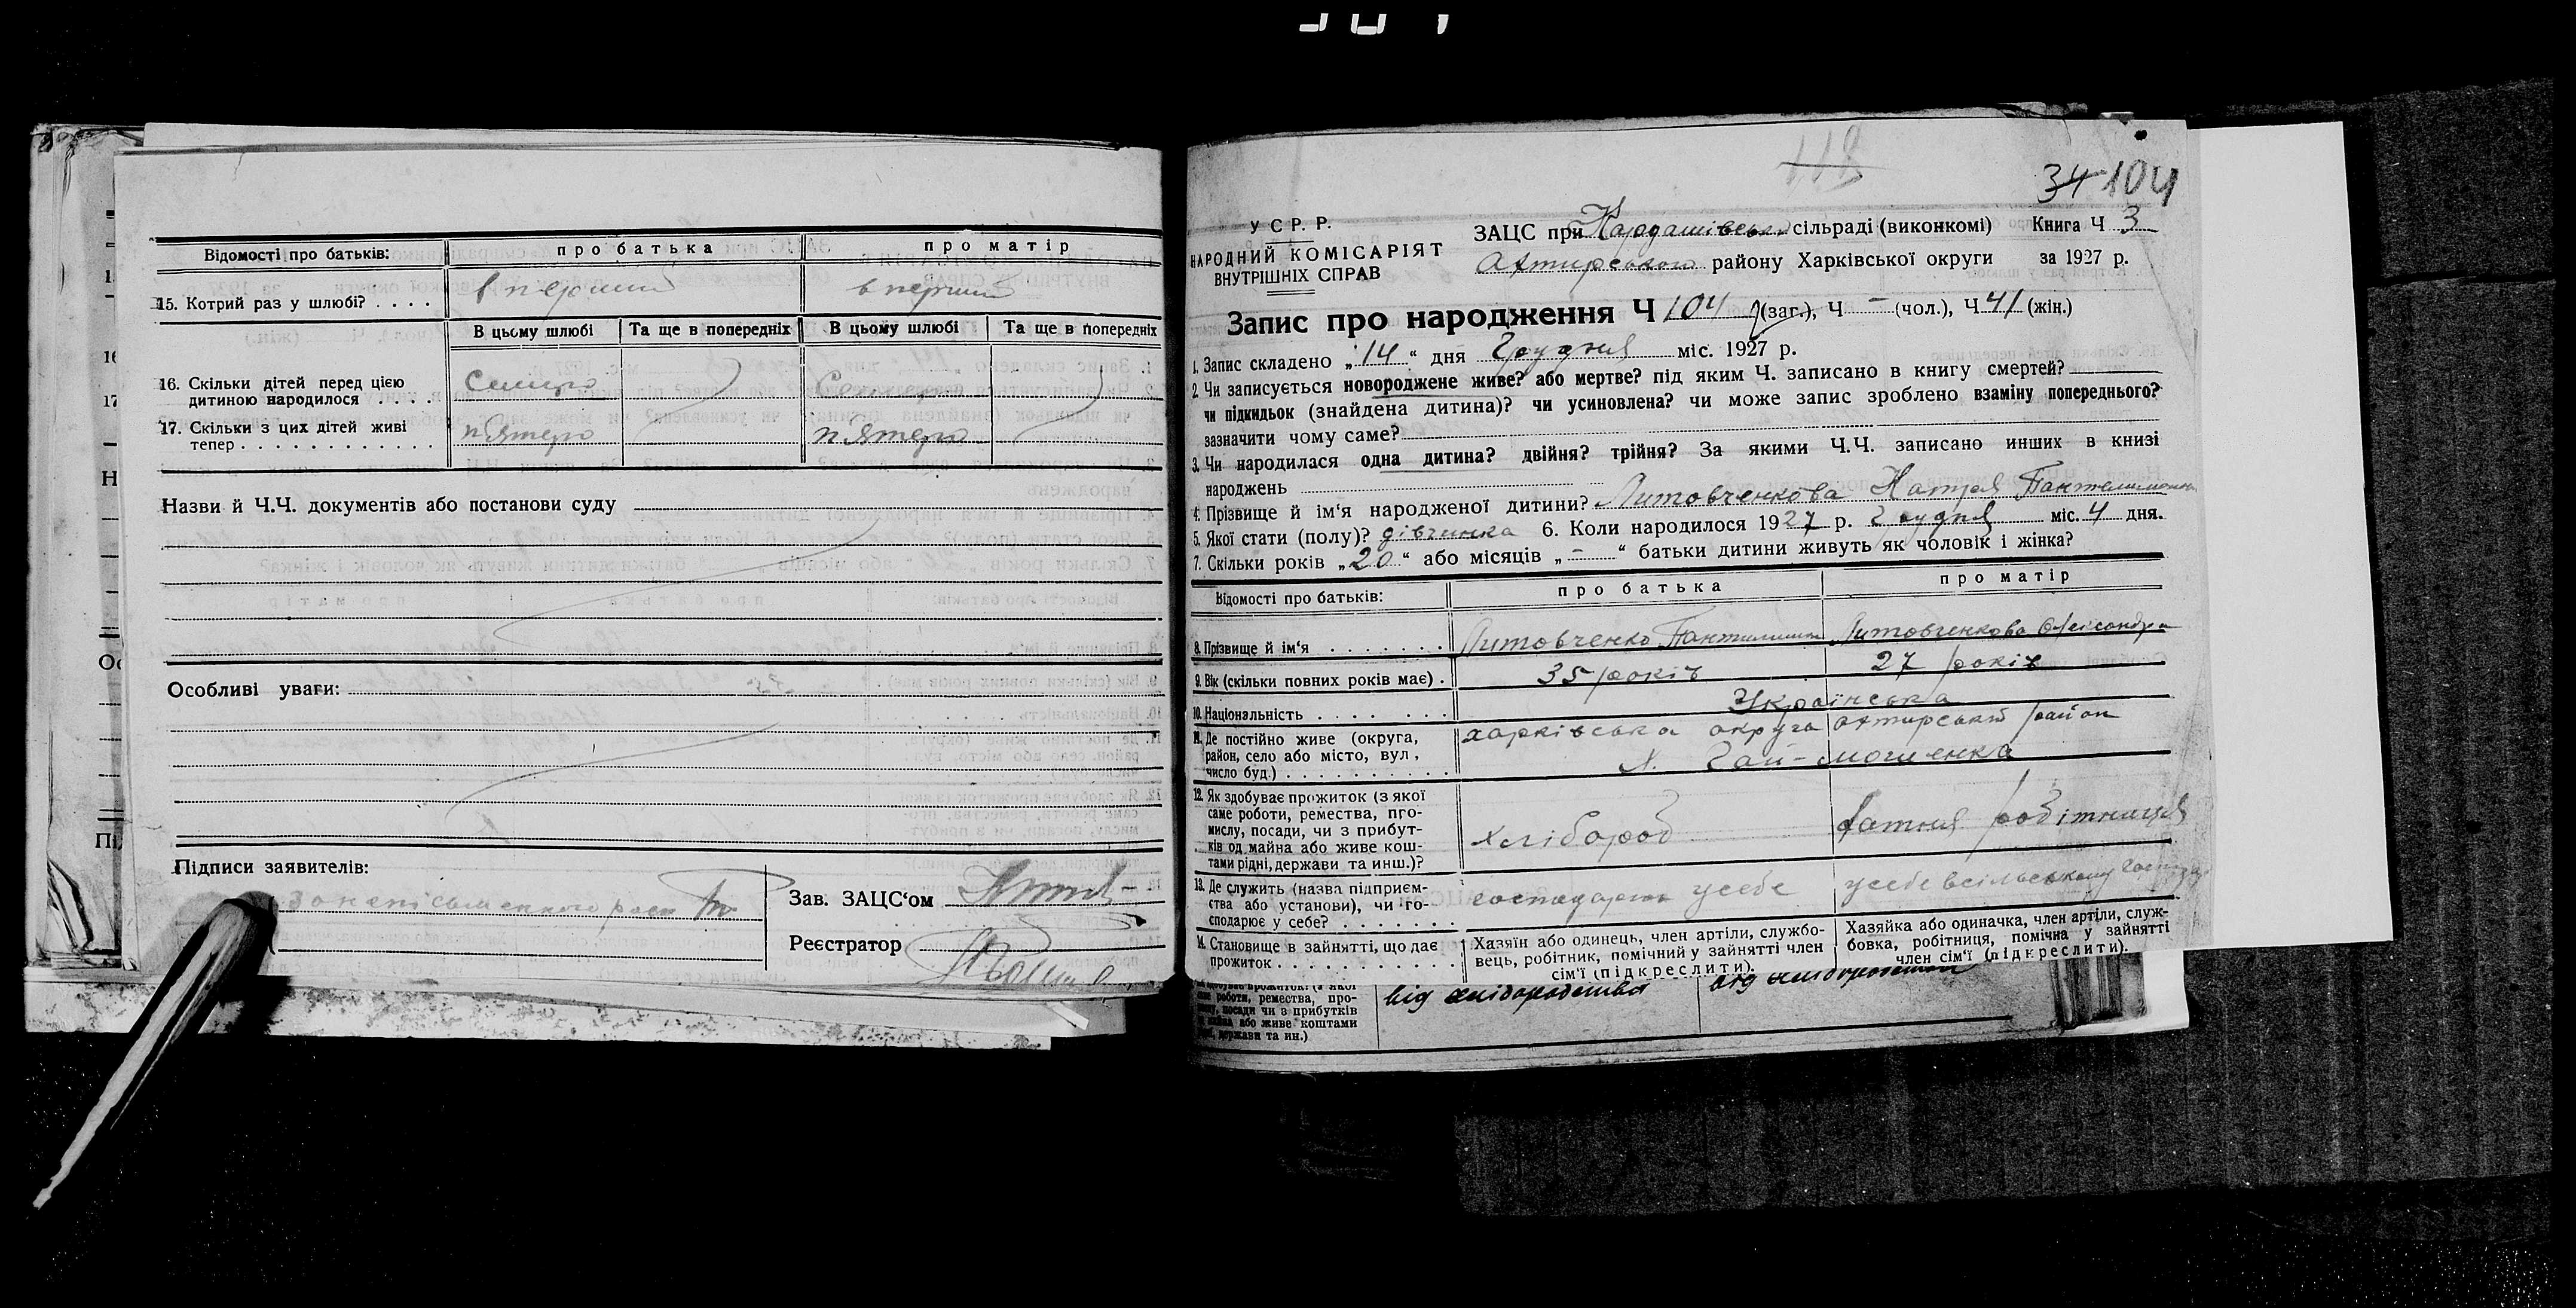 Відомості про батьків: про батька про матір
15. Котрий раз у шлюбі? . . . . в перший в перший
В цьому шлюбі Та ще в попередніх В цьому шлюбі Та ще в попередніх
16. Скільки дітей перед цією
дитиною народилося . . . . Семеро Семеро
17. Скільки з цих дітей живі
тепер . . . . . . . . . . . . . п'ятеро п'ятеро
Назви й Ч.Ч. документів або постанови суду
Особливі уваги:
Підписи заявителів:
за неписьменного
Зав. ЗАЦС‘ом
Реєстратор
118
34 104
У С Р. Р.
НАРОДНИЙ КОМІСАРІЯТ
ВНУТРІШНІХ СПРАВ
ЗАЦС при Кардашівськ сільраді (виконкомі) Книга Ч 3
Охтирського району Харківської округи за 1927 р.
Запис про народження Ч 104 (заг.), Ч - (чол.), Ч 41 (жін.)
1. Запис складено „14“ дня Грудня міс. 1927 р.
2. Чи записується новороджене живе? або мертве? під яким Ч. записано в книгу смертей?
чи підкидьок (знайдена дитина)? чи усиновлена? чи може запис зроблено взаміну попереднього?
зазначити чому саме?
3. Чи народилася одна дитина? двійня? трійня? За якими Ч.Ч. записано инших в книзі
народжень
4. Прізвище й ім‘я народженої дитини? Литовченкова Натря Пантелимонов
5. Якої стати (полу)? дівчинка 6. Коли народилося 1927 р. Грудня міс. 4 дня.
7. Скільки років „20“ або місяців „-“ батьки дитини живуть як чоловік і жінка?
Відомості про батьків: про батька про матір
8. Прізвище й ім‘я . . . . . . . Литовченко Пантилимон Литовченкова Олександра
9. Вік (скільки повних років має) . 35 років 27 років
10. Національність . . . . . . . Українська
11. Де постійно живе (округа, харківська округа охтирський район
район, село або місто, вул., х. Гай-мошенка
число буд.) . . . . . . . . . .
12. Як здобуває прожиток (з якої
саме роботи, ремества, про-
мислу, посади, чи з прибут- хлібороб хатня робітниця
ків од майна або живе кош-
тами рідні, держави та инш.)?
13. Де служить (назва підприєм-
ства або установи), чи го- господарює у себе у себе в сільському
сподарює у себе? . . . . . . .
14. Становище в зайнятті, що дає
прожиток . . . . . . . . . . .
Хазяїн або одинець, член артіли, службо-
вець, робітник, помічний у зайнятті член
сім‘ї (підкреслити).
Хазяйка або одиначка, член артіли, служ-
бовка, робітниця, помічна у зайнятті
член сім‘ї (підкреслити).
роботи, ремества, про- від хліборобства від хліборобства
посади чи з прибутків
майна або живе коштами
держави та ин.)